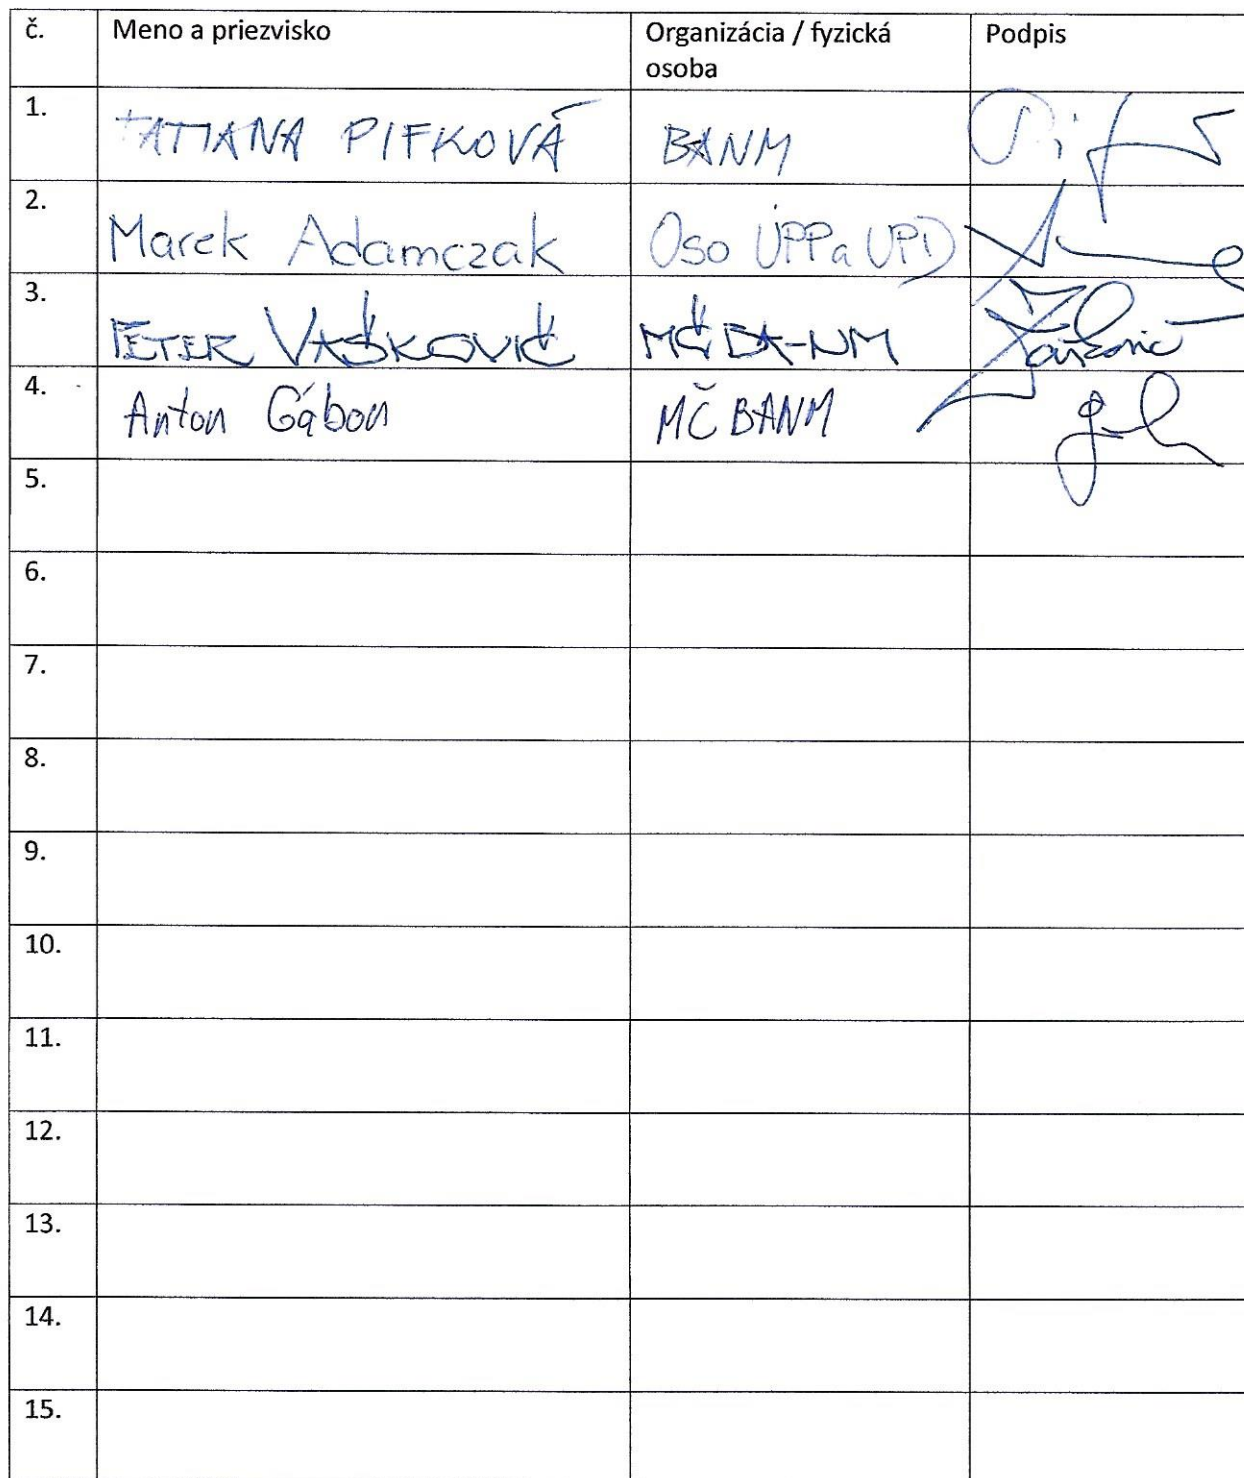 č. Meno a priezvisko Organizácia / fyzická Podpis
osoba
1. TATIANA PIFKOVÁ BANM
2. Marek Adamczak Oso ÚPP a UPD
3. PETER VAŠKOVIČ MČ BA-NM
4. Anton Gábon MČ BANM
5.
6.
7.
8.
9.
10.
11.
12.
13.
14.
15.